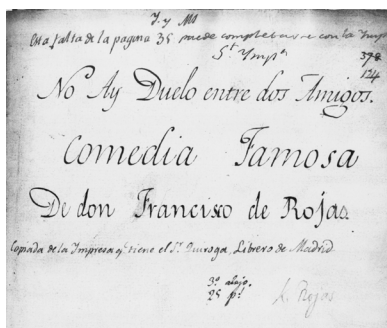 J. y Ms
Esta falta de la pagina 35 puede completarse con la Imp
S.t Ymp.n
378
124
No Ay Duelo entre dos Amigos.
Comedia Famosa
De don Francisco de Rojas
Copiada de la Impresa q.e tiene el S.r Quiroga, Librero de Madrid
3.o abajo.
25 p.l
Rojas